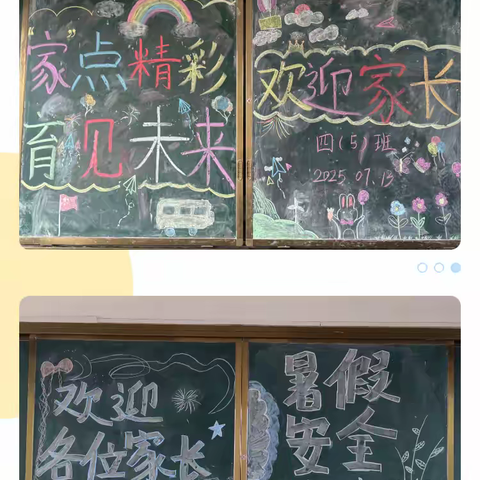 “家”点精彩
育见未来
欢迎家长
四(5)班
2025.07.13
欢迎
各位家长
暑假
安全